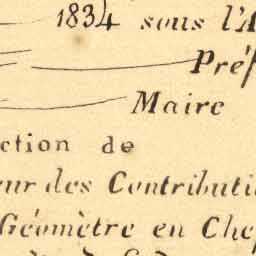 1834 sous l'A
Préf
Maire
ction de
eur des Contributi
Géomètre en Chef